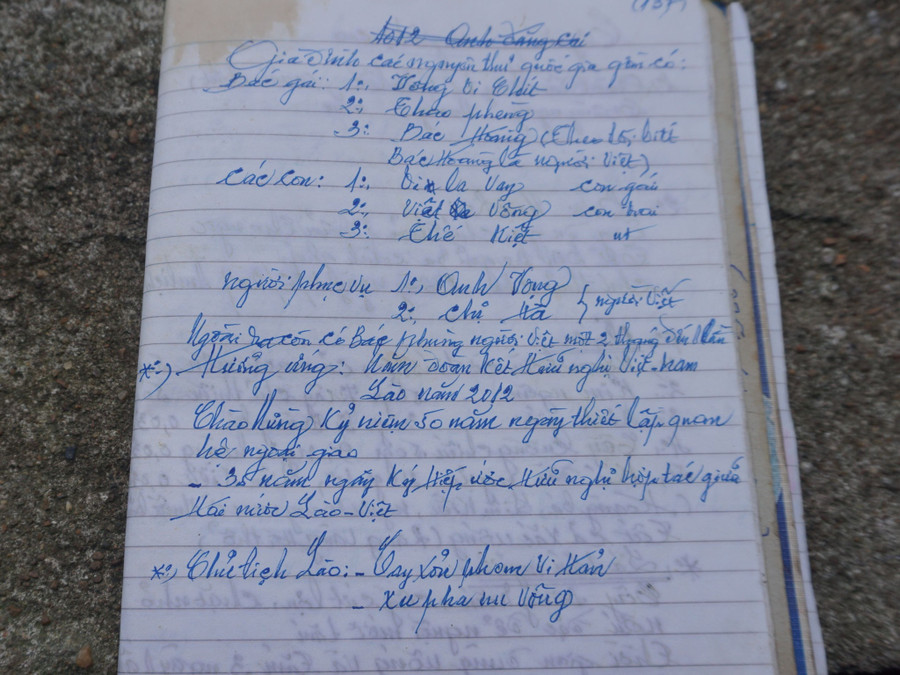 (137)
1012 Anh Dăng Chí
Gia Đình các nguyên thủ quốc gia gồm có:
Bác gái: 1:, Voong Vi Chít
2:, Thao pheng
3: Bác Hoàng (Theo tôi biết
Bác Hoàng là người Việt)
Các con: 1:, Vi la Vay con gái
2:, Việt Vông con trai
3: Thế Kiệt út
người phục vụ 1:, Anh Vọng
2: Chị Hà { người Việt
Ngoài ra còn có Bác phùng người Việt một 2 tháng đến 1 lần
*:) Hưởng ứng: Năm đoàn kết Hữu nghị Việt-nam
Lào năm 2012
Chào Mừng Kỷ niệm 50 năm ngày thiết lập quan
hệ ngoại giao
- 30 năm ngày Ký Hiệp ước Hữu nghị hợp tác giữa
Hai nước Lào-Việt
*:, Chủ tịch Lào: - Cay xỏn phom vi hản
- Xu pha nu vông